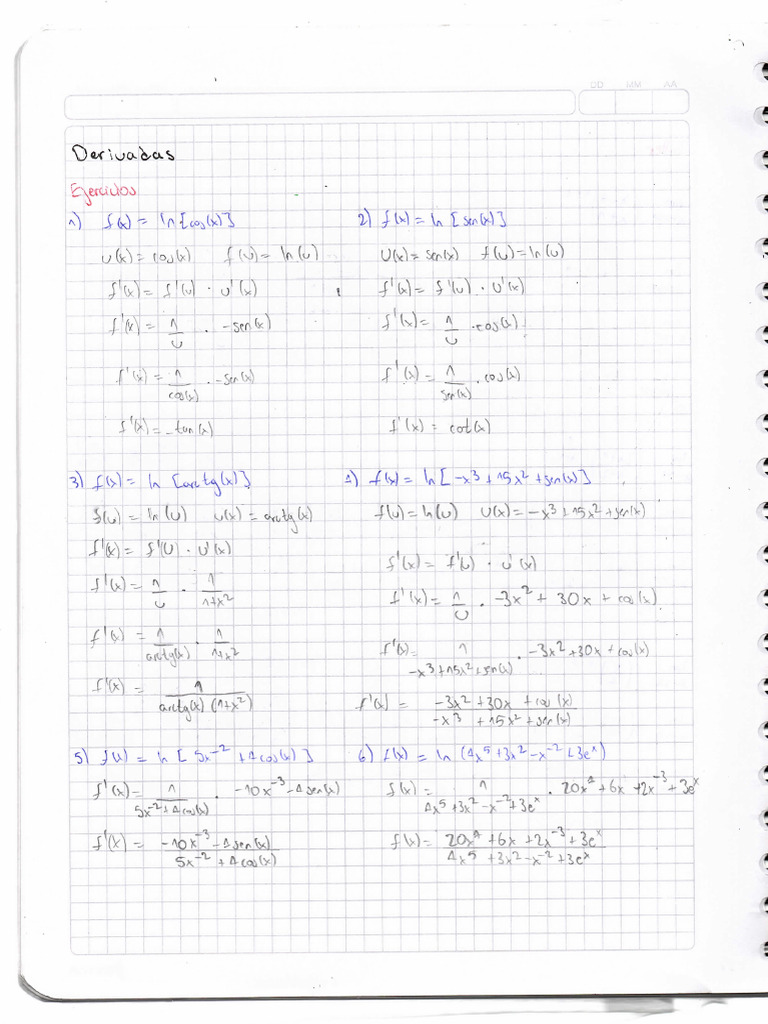 DD MM AA
Derivadas
Ejercicios
1) f(x) = ln[cos(x)]
u(x) = cos(x) f(u) = ln(u)
f'(x) = f'(u) · u'(x)
f'(x) = 1/u · -sen(x)
f'(x) = 1/cos(x) · -sen(x)
f'(x) = -tan(x)
2) f(x) = ln[sen(x)]
U(x) = sen(x) f(u) = ln(u)
f'(x) = f'(u) · u'(x)
f'(x) = 1/u · cos(x)
f'(x) = 1/sen(x) · cos(x)
f'(x) = cot(x)
3) f(x) = ln [arctg(x)]
f(u) = ln(u) u(x) = arctg(x)
f'(x) = f'(u) · u'(x)
f'(x) = 1/u · 1/1+x²
f'(x) = 1/arctg(x) · 1/1+x²
f'(x) = 1/arctg(x) (1+x²)
4) f(x) = ln[-x³ + 15x² + sen(x)]
f(u) = ln(u) U(x) = -x³ + 15x² + sen(x)
f'(x) = f'(u) · u'(x)
f'(x) = 1/u · -3x² + 30x + cos(x)
f'(x) = 1/-x³+15x²+sen(x) · -3x²+30x+cos(x)
f'(x) = -3x² + 30x + cos(x)/-x³ + 15x² + sen(x)
5) f(x) = ln [5x⁻² + 4cos(x)]
f'(x) = 1/5x⁻²+4cos(x) · -10x⁻³ - 4sen(x)
f'(x) = -10x⁻³ - 4sen(x)/5x⁻² + 4cos(x)
6) f(x) = ln (4x⁵ + 3x² - x⁻² + 3eˣ)
f(x) = 1/4x⁵+3x²-x⁻²+3eˣ · 20x⁴ + 6x + 2x⁻³ + 3eˣ
f(x) = 20x⁴ + 6x + 2x⁻³ + 3eˣ/4x⁵ + 3x² - x⁻² + 3eˣ